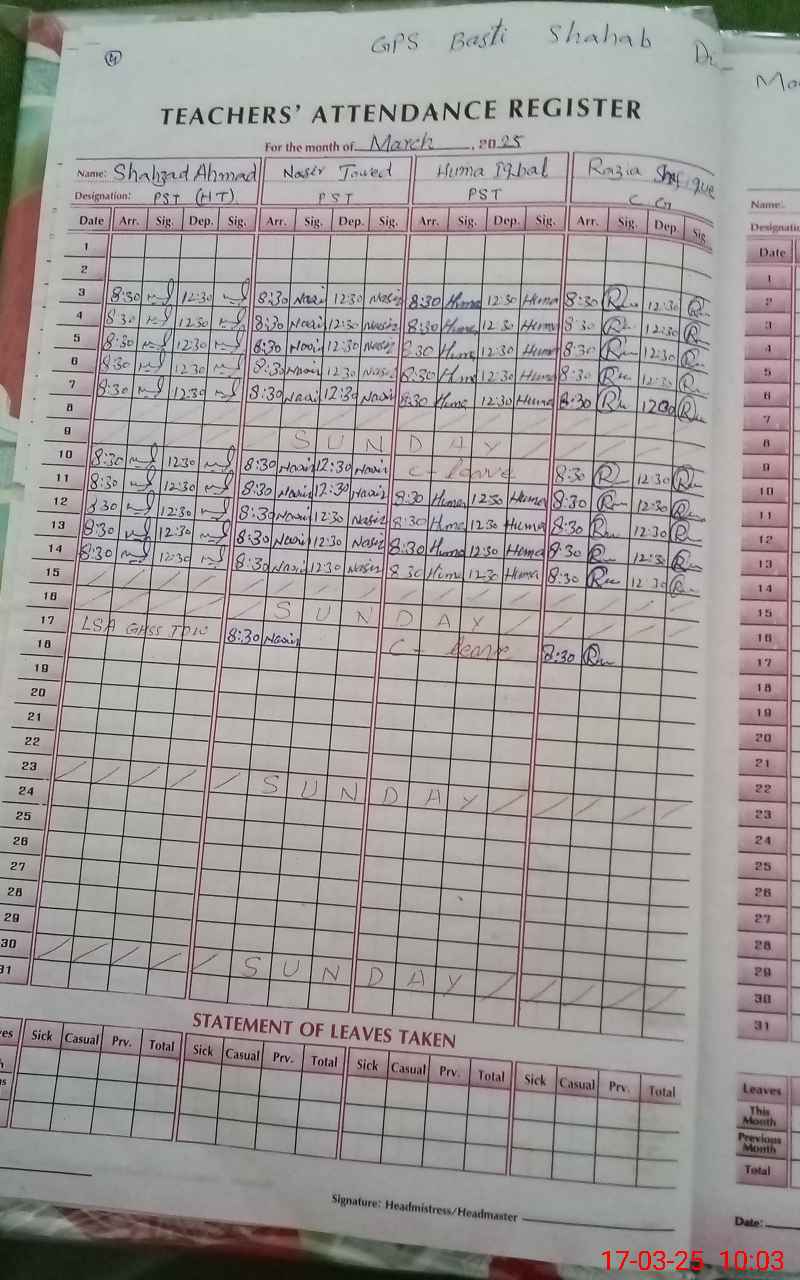 4
GPS Basti Shahab Du-
TEACHERS' ATTENDANCE REGISTER
For the month of March, 2025
Name: Shahzad Ahmad Nasir Javed Huma Iqbal Razia Shafique
Designation: PST (HT) PST PST C.G
Date Arr. Sig. Dep. Sig. Arr. Sig. Dep. Sig. Arr. Sig. Dep. Sig. Arr. Sig. Dep. Sig.
1
2
3 8:30 12:30 8:30 Nasir 12:30 Nasir 8:30 Huma 12:30 Huma 8:30 12:30
4 8:30 12:30 8:30 Nasir 12:30 Nasir 8:30 Huma 12:30 Huma 8:30 12:30
5 8:30 12:30 8:30 Nasir 12:30 Nasir 8:30 Huma 12:30 Huma 8:30 12:30
6 8:30 12:30 8:30 Nasir 12:30 Nasir 8:30 Huma 12:30 Huma 8:30 12:30
7 8:30 12:30 8:30 Nasir 12:30 Nasir 8:30 Huma 12:30 Huma 8:30
8
9 SUNDAY
10 8:30 12:30 8:30 Nasir 12:30 Nasir C-leave 8:30 12:30
11 8:30 12:30 8:30 Nasir 12:30 Nasir 8:30 Huma 12:30 Huma 8:30 12:30
12 8:30 12:30 8:30 Nasir 12:30 Nasir 8:30 Huma 12:30 Huma 8:30 12:30
13 8:30 12:30 8:30 Nasir 12:30 Nasir 8:30 Huma 12:30 Huma 8:30 12:30
14 8:30 12:30 8:30 Nasir 12:30 Nasir 8:30 Huma 12:30 Huma 8:30 12:30
15
16 SUNDAY
17 LSA GHSS TDW 8:30 Nasir C-leave 8:30
18
19
20
21
22
23 SUNDAY
24
25
26
27
28
29
30 SUNDAY
31
STATEMENT OF LEAVES TAKEN
Sick Casual Prv. Total Sick Casual Prv. Total Sick Casual Prv. Total Sick Casual Prv. Total
Signature: Headmistress/Headmaster
Name:
Date
1
2
3
4
5
6
7
8
9
10
11
12
13
14
15
16
17
18
19
20
21
22
23
24
25
26
27
28
29
30
31
Leaves
This
Month
Previous
Month
Total
Date:
17-03-25 10:03